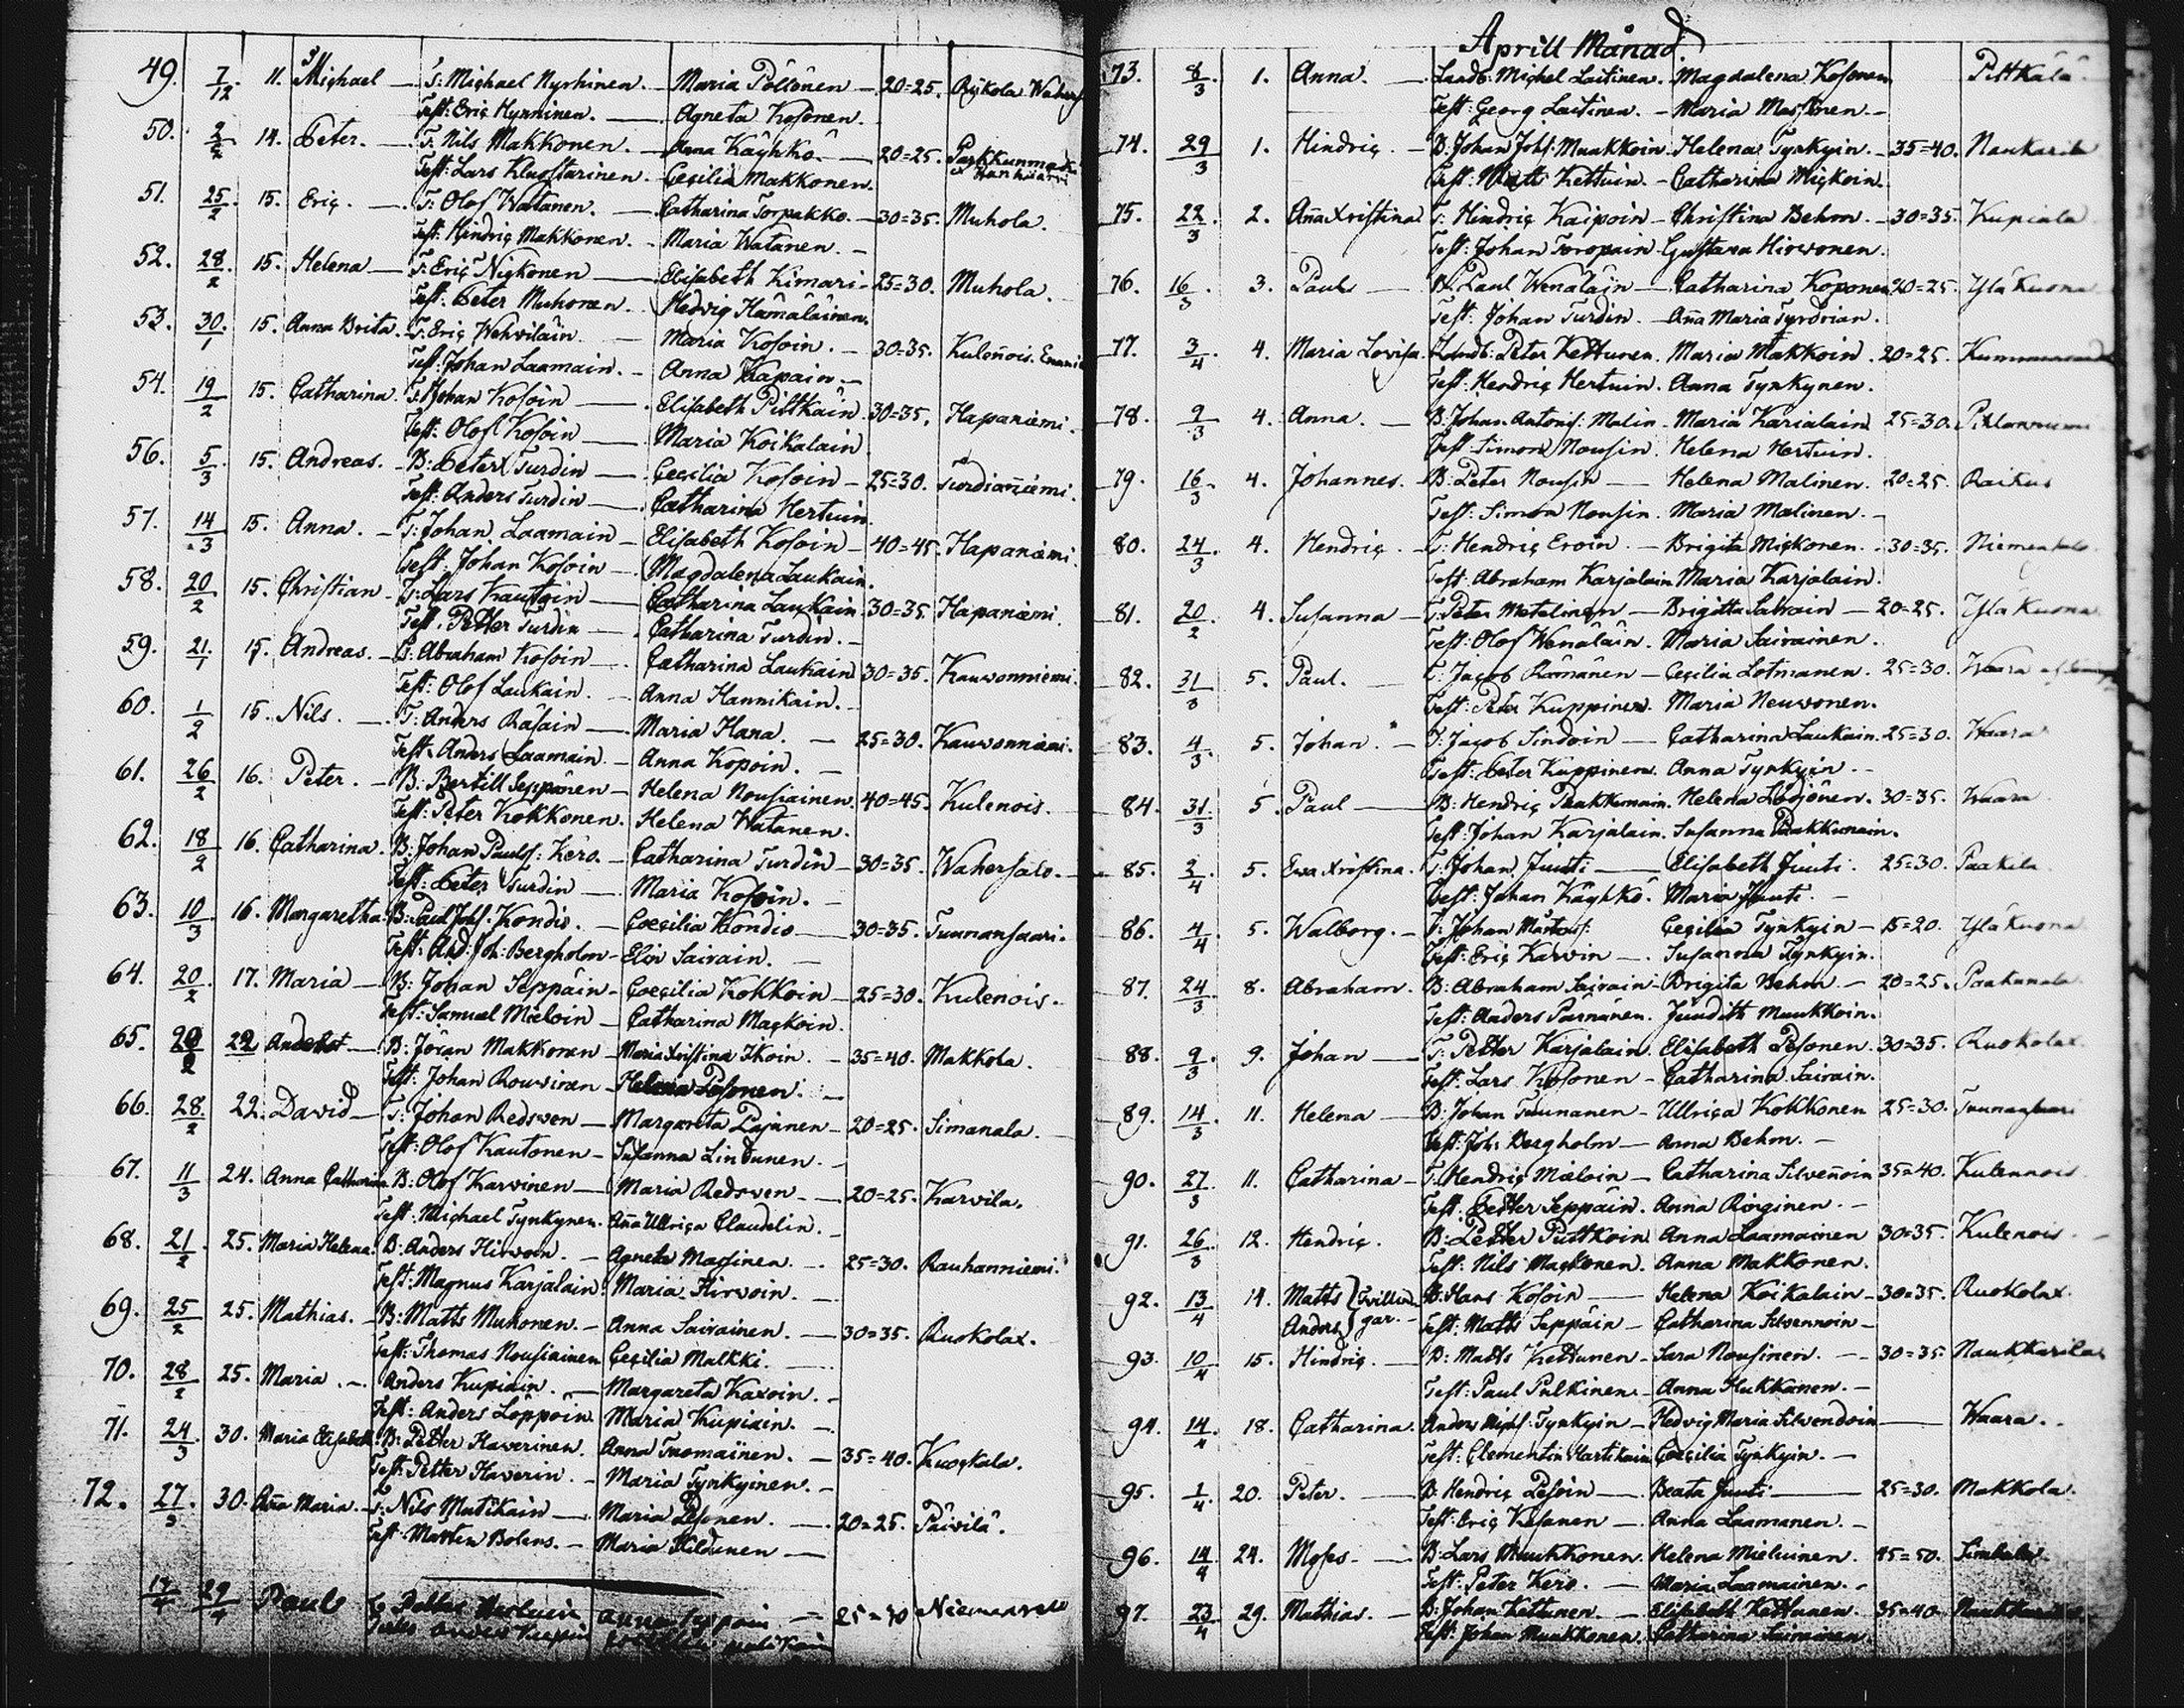 49. 7/12 11. Michael — T: Michael Nyrhinen. — Maria Pöllönen — 20=25.
Test: Eric Hynninen. — Agneta Kosonen.
50. 14. Peter. — T: Nils Makkonen. — Anna Käyhkö. — 20=25.
Test: Lars Kluostarinen. — Cecilia Makkonen.
51. 25/2 15. Eric. — T: Olof Watanen. — Catharina Torpakko. — 30=35. Muhola.
Test: Hindric Makkonen. — Maria Watanen. —
52. 28/2 15. Helena — T: Eric Nickonen — Elisabeth Kimari — 25=30. Muhola.
Test: Peter Muhonen. — Hedvig Hämäläinen.
53. 30/1 15. Anna Brita. T: Eric Wehviläin. — Maria Kosoin. — 30=35. Kulen̄ois.
Test: Johan Laamain. — Anna Kapain. —
54. 19/2 15. Catharina. T: Johan Kosoin — Elisabeth Pittkäin 30=35. Hapaniemi.
Test: Olof Kosoin — Maria Koikalain
56. 5/3 15. Andreas. — B: Peter Turdin — Cecilia Kosoin — 25=30. Turdian̄iemi.
Test: Anders Turdin — Catharina Hertuin.
57. 14/3 15. Anna. — T: Johan Laamain — Elisabeth Kosoin — 40=45. Hapaniemi.
Test: Johan Kosoin — Magdalena Laukain.
58. 20/2 15. Christian — T: Lars Kautoin — Catharina Laukain 30=35. Hapaniemi.
Test: Petter Turdin — Catharina Turdin. —
59. 21/1 15. Andreas. — B: Abraham Kosoin — Catharina Laukain 30=35. Kauvonniemi.
Test: Olof Laukain. — Anna Hannikain. —
60. 1/2 15. Nils. — T: Anders Räsain — Maria Hana. — 25=30. Kauvonniemi.
Test: Anders Laamain. — Anna Kopoin. —
61. 26/2 16. Peter. — B: Bertill Seppänen — Helena Nousiainen 40=45. Kulenois.
Test: Peter Kokkonen. Helena Watanen.
62. 18/2 16. Catharina. B: Johan Pauls: Kero. — Catharina Turdin — 30=35. Wahersalo. —
Test: Peter Turdin — Maria Kosoin. —
63. 10/3 16. Margaretha B: Paul Johs: Kondio. — Coecilia Kondio — 30=35. Tuunansaari.
Test: And. Joh: Bergholm — Elin Sairain. —
64. 20/2 17. Maria — B: Johan Seppäin — Coecilia Kokkoin — 25=30. Kulenois.
Test: Samuel Mieloin — Catharina Mackoin.
65. 22 B: Jöran Makkonen — Maria Xristina Ikoin. — 35=40. Makkola.
Test: Johan Rouvinen — Helena Pesonen. —
66. 28/2 22. David — T: Johan Redsven — Margareta Pajunen — 20=25. Simanala.
Test: Olof Kautonen — Susanna Lindunen. —
67. 11/3 24. Anna Catharina B: Olof Karvinen — Maria Redsven. — 20=25. Karvila.
Test: Michael Tynkynen. An̄a Ullrica Claudelin. —
68. 21/2 25. Maria Helena. B: Anders Hirvoin. — Agneta Massinen. — 25=30. Rauhanniemi.
Test: Magnus Karjalain: Maria Hirvoin. —
69. 25/2 25. Mathias. — B: Matts Muhonen. — Anna Sairainen. — 30=35. Ruokolax.
Test: Thomas Nousiainen Cecilia Malkki. —
70. 28/2 25. Maria. — Anders Kupiain. — Margareta Kaxoin. —
Test: Anders Löppöin. Maria Kupiain. —
71. 24/3 30. Maria Elisabeth. B: Petter Haverinen. Anna Tuomainen. — 35=40. Kuockala.
Test: Petter Haverin. — Maria Tynkyinen. —
72. 27/3 30. An̄a Maria. — T: Nils Matikain — Maria Pesonen. — 20=25. Päivilä.
Test: Marten Bolens. — Maria Kildunen —
17/4 29/4 Paul Anna 25=30
Aprill Månad
73. 8/3 1. Anna. — Landb: Michel Laitinen. Magdalena Kosonen Pittkälä
Test: Georg Laitinen. — Maria Massinen —
74. 29/3 1. Hindric. — B: Johan Johs: Muukkoin. Helena Tynkyin. — 35=40.
Test: Matts Kettuin. — Catharina Mickoin.
75. 22/3 2. An̄a Xristina T: Hindric Kaipoin — Christina Behm. — 30=35. Kupiala
Test: Johan Toropain Gustava Hirvonen.
76. 16/3 3. Paul — B: Paul Wenäläin — Catharina Koponen 20=25. Ylä Kuona
Test: Johan Turdin. — An̄a Maria Tyrdrian.
77. 3/4 4. Maria Lovisa. Landb: Peter Kettunen. Maria Makkoin. 20=25.
Test: Hendric Hertuin. Anna Tynkynen.
78. 9/3 4. Anna. — B: Johan Antons: Malin. Maria Karialain 25=30.
Test: Simon Nousin. Helena Hertuin.
79. 16/3 4. Johannes. — B: Peter Nousin — Helena Malinen. 20=25. Raikus
Test: Simon Nousin. Maria Malinen. —
80. 24/3 4. Hendric. — T: Hendric Eroin. — Brigita Mickonen. 30=35.
Test: Abraham Karjalain Maria Karjalain.
81. 20/2 4. Susanna — T: Peter Matalinen — Brigitta Sairain — 20=25. Ylä Kuona
Test: Olof Wenäläin. Maria Sairainen.
82. 31/3 5. Paul. — T: Jacob Rämänen — Cecilia Lotmanen. 25=30. Waara
Test: Peter Kuppinen. Maria Neuvonen.
83. 4/3 5. Johan. — T: Jacob Sindoin — Catharina Laukain. 25=30. Waara
Test: Peter Kuppinen. Anna Tynkyin —
84. 31/3 5. Paul — B: Hendric Paakkunain. Helena Lödjönen. 30=35. Waara
Test: Johan Karjalain. Susanna Paakkunain.
85. 2/4 5. Ewa Xristina. T: Johan Juuti — Elisabeth Juuti. 25=30. Paakila
Test: Johan Käyhkö. Maria Juuti. —
86. 4/4 5. Walborg. — T: Johan Cecilia Tynkyin — 15=20. Ylä Kuona
Test: Eric Karvin — Susanna Tynkyin.
87. 24/3 8. Abraham. B: Abraham Sairain — Brigita Behm — 20=25. Paakunala
Test: Anders Parnänen. Juudith Muukkoin.
88. 9/3 9. Johan — T: Petter Karjalain. Elisabeth Pesonen. 30=35. Ruokolax
Test: Lars Kosonen — Catharina Sairain.
89. 14/3 11. Helena — B: Johan Tuunanen — Ullrica Kokkonen 25=30. Tuunansaari
Test: Joh: Bergholm — Anna Behm. —
90. 27/3 11. Catharina — T: Hendric Mieloin — Catharina Silven̄oin 35=40. Kulennois
Test: Petter Seppäin. Anna Ronginen. —
91. 26/3 12. Hendric. B: Petter Puttkoin Anna Laamainen 30=35. Kulenois
Test: Nils Mackonen. Anna Makkonen.
92. 13/4 14. Matts Tvillin B: Hans Kosoin — Helena Koikalain — 30=35. Ruokolax
Anders gar. — Test: Matts Seppäin — Catharina Silvennoin —
93. 10/4 15. Hindric. — B: Matts Kettunen — Sara Nousinen. — 30=35 Naukkarila
Test: Paul Pulkinen — Anna Hukkanen. —
94. 14/4 18. Catharina. Anders Michs: Tynkyin — Hedvig Maria Silvendoin — Waara.
Test: Clementin Hartikain Coecilia Tynkyin. —
95. 1/4 20. Peter. — B: Hendric Pesoin — Beata Juuti — 25=30. Makkola.
Test: Eric Kesanen — Anna Laamanen. —
96. 14/4 24. Moses — B: Lars Muukkonen. Helena Mieluinen.
Test: Peter Kero. — Maria Laamainen. —
97. 23/4 29. Mathias. — B: Johan Kettunen. — Elisabeth Kettunen. 35=40
Test: Johan Muukkonen. Catharina Sairainen.